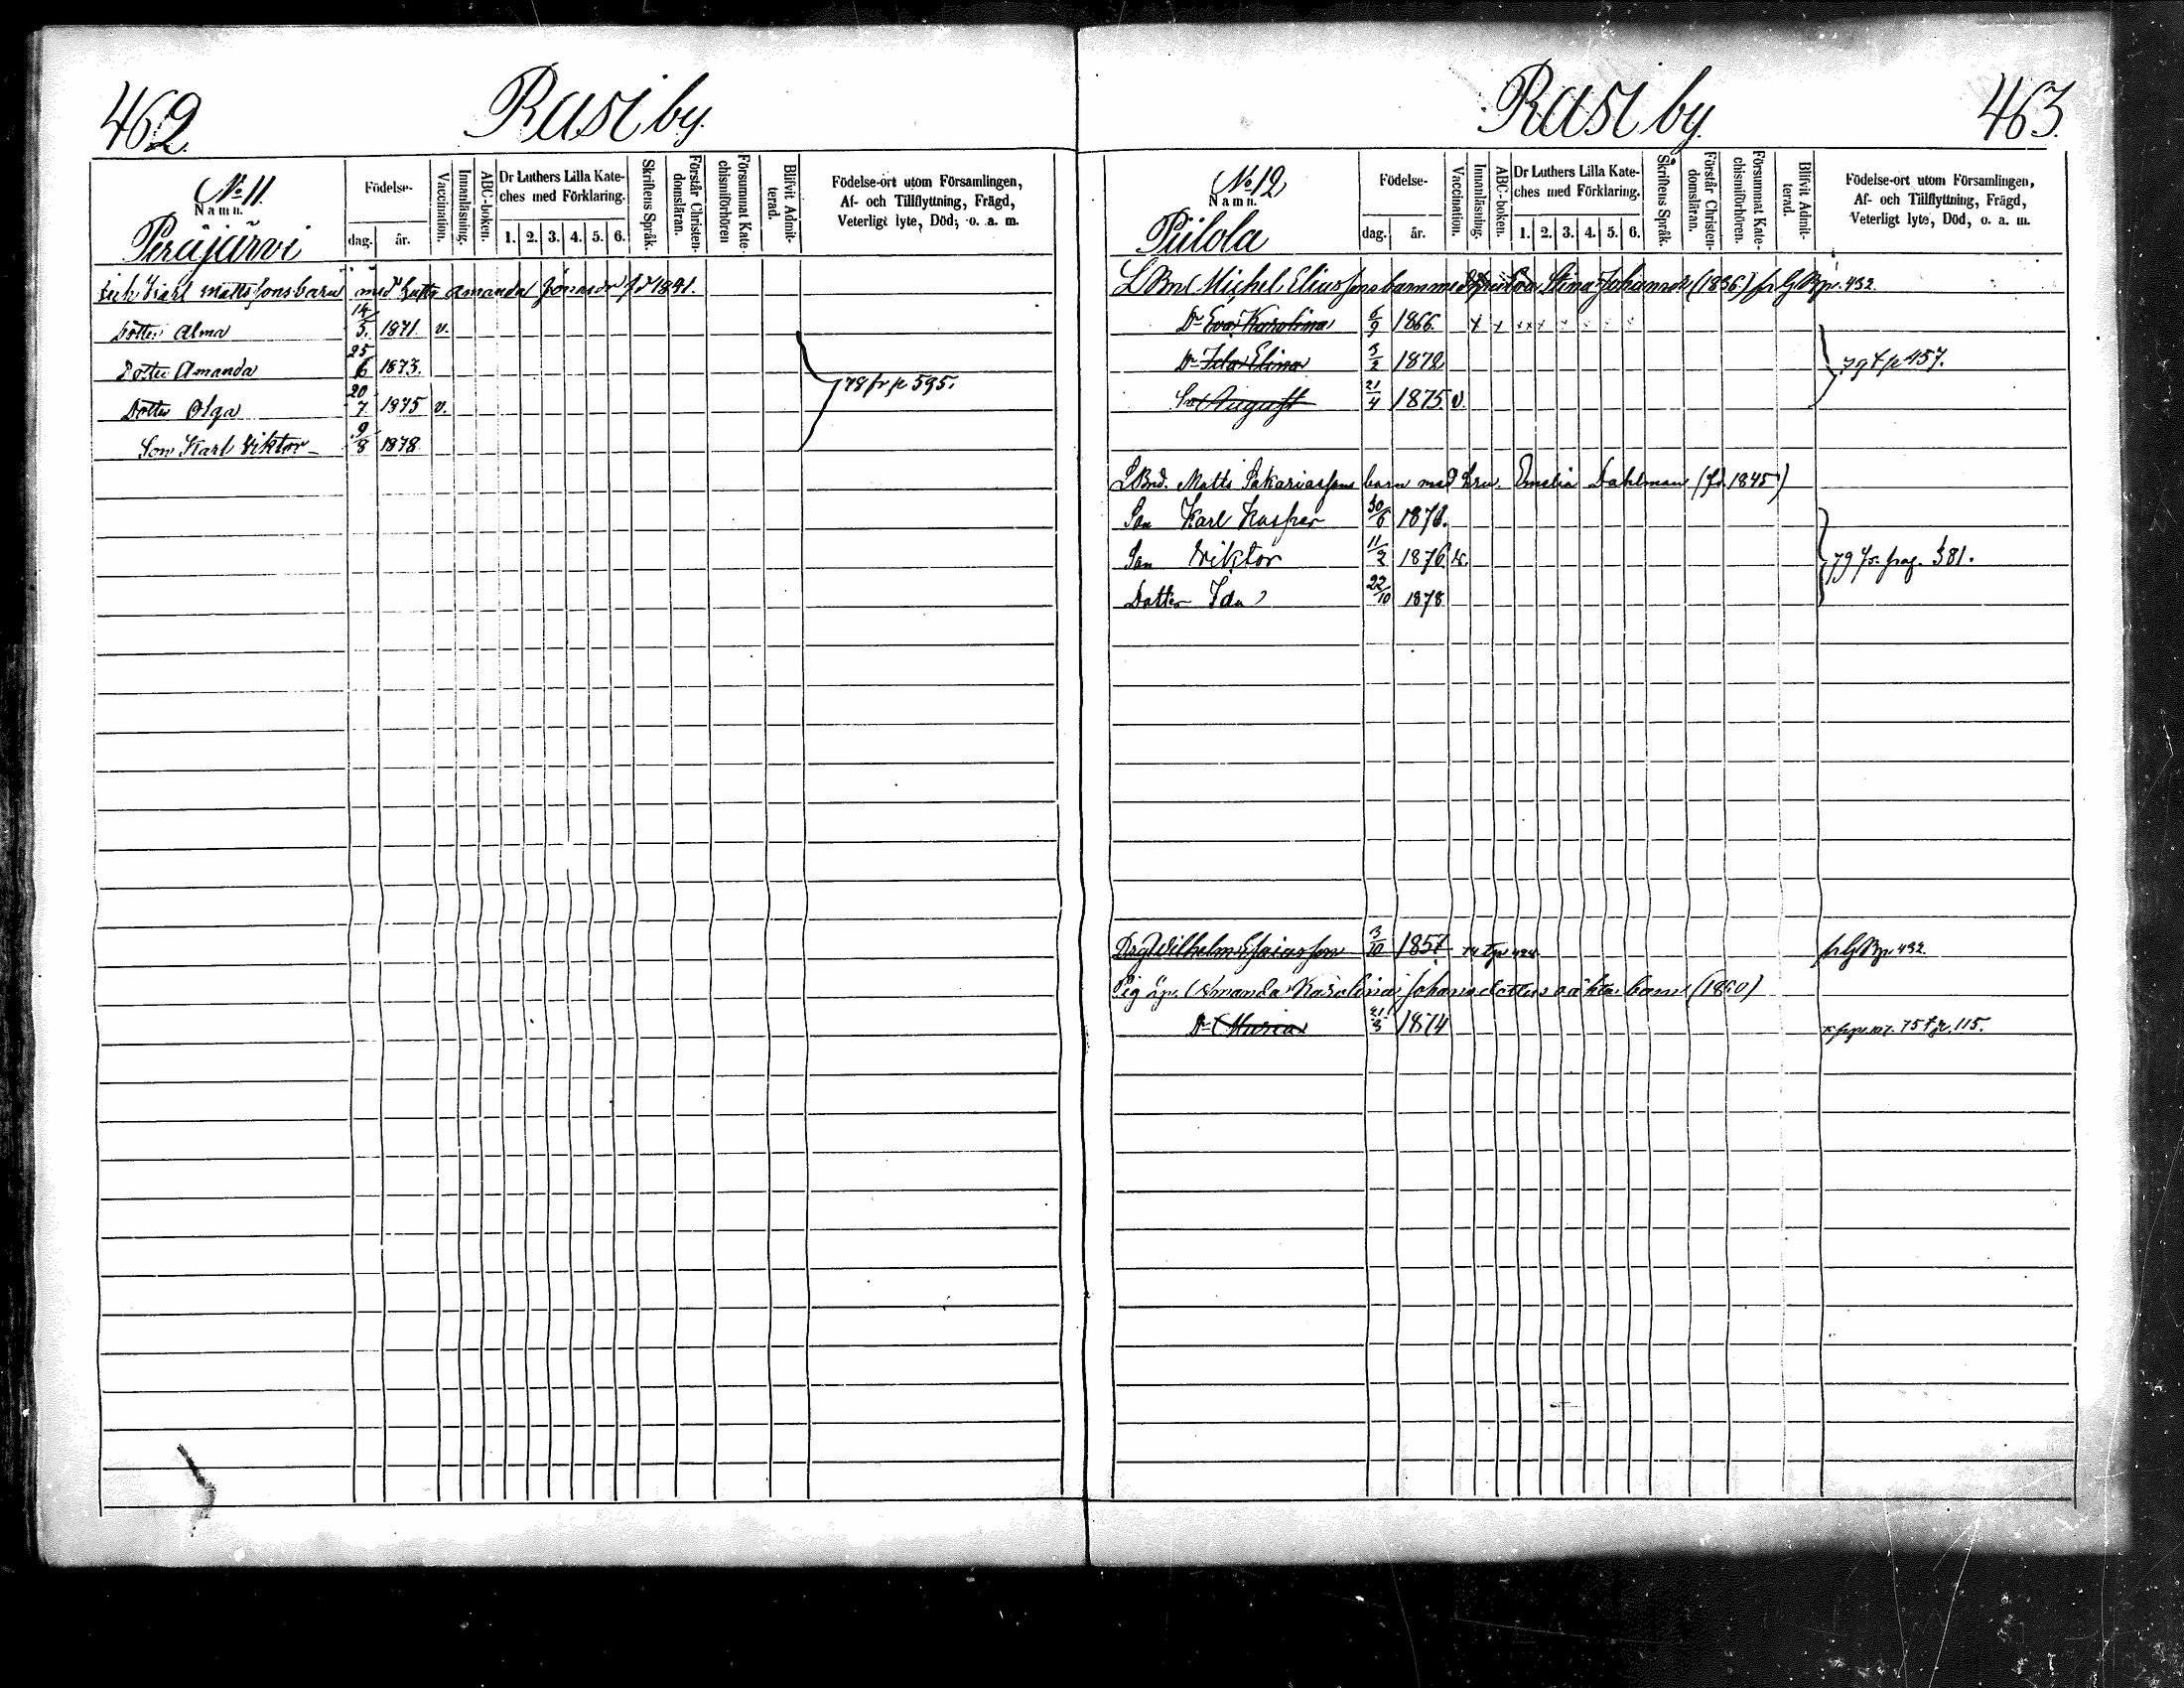 462
Rasi by.
No 11.
Namn.
Födelse-
dag. år.
Vaccination.
Innanläsning.
ABC-boken.
Dr Luthers Lilla Kate-
ches med Förklaring.
1. 2. 3. 4. 5. 6.
Skriftens Språk.
Förstår Christen-
domsläran.
Försummat Kate-
chismiförhören
Blifvit Admit-
terad.
Födelse-ort utom Församlingen,
Af- och Tillflyttning, Frägd,
Veterligt lyte, Död, o. a. m.
Peräjärvi
Karl Mattssons barn med hustr Amanda
Dotter Alma 14/5. 1871. v.
Dotter Amanda 25/6 1873.
Dotter Olga 20/7. 1875 v.
Son Karl Viktor 9/8 1878.
78 fr p 595.
Rasi by.
463
No 12
Namn.
Födelse-
dag. år.
Vaccination.
Innanläsning.
ABC-boken.
Dr Luthers Lilla Kate-
ches med Förklaring.
1. 2. 3. 4. 5. 6.
Skriftens Språk.
Förstår Christen-
domsläran.
Försummat Kate-
chismiförhören.
Blifvit Admit-
terad.
Födelse-ort utom Församlingen,
Af- och Tillflyttning, Frägd,
Veterligt lyte, Död, o. a. m.
Piilola
Michel Eliassons barn med Stina Johansdr (1836) fr G B p. 432.
Dr Eva Karolina 6/9 1866.
Dr Ida Elina 5/2 1872
Sn August 21/4 1875. v.
79 t p 457.
LBnd. Matts Sakariassons barn med hru. Emelia Dahlman (fd. 1845)
Son Karl Kasper 30/6
Son Viktor 11/2 1876.
Dotter Ida 22/10 1878
79 fr. pag. 381.
Drg Wilhelm 3/10 1857 74 t p 424. fr G B p. 432.
Pig Amanda Karolina Johansdotters oäkta barn
Dr Maria 1874 75 t p. 115.